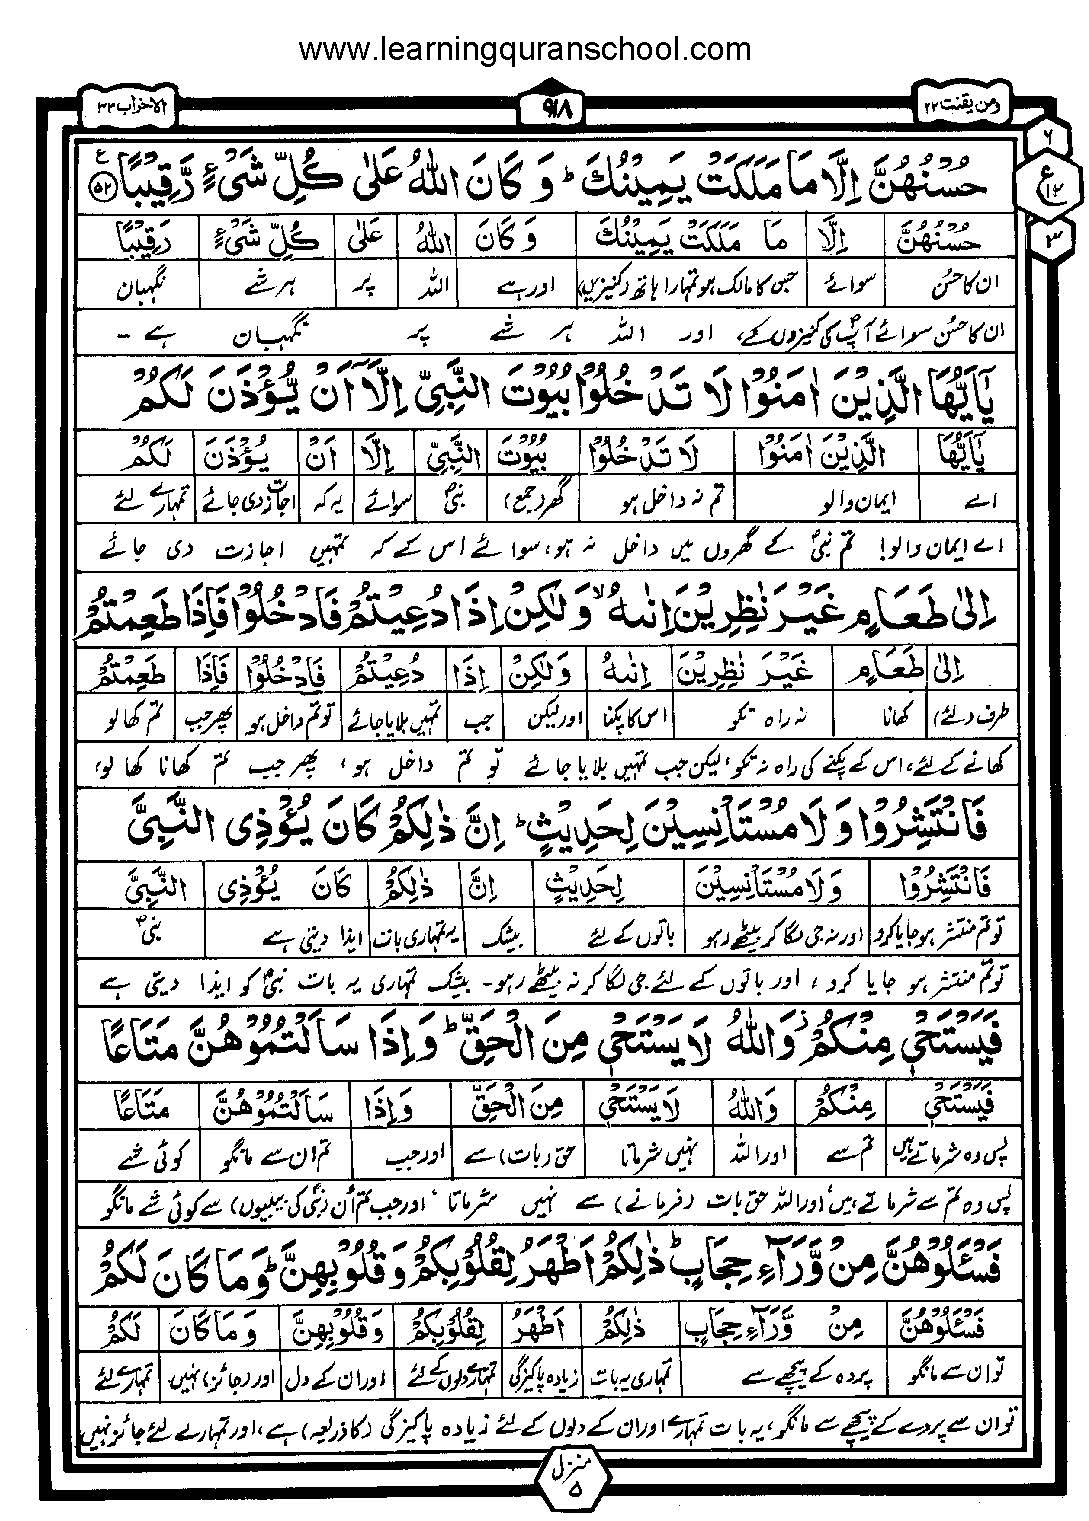 www.learningquranschool.com
ومن یقنت ۲۲
۹۱۸
الاحزاب ۳۳
حُسْنُهُنَّ اِلَّا مَا مَلَكَتْ يَمِيْنُكَ ؕ وَ كَانَ اللّٰهُ عَلٰى كُلِّ شَىْءٍ رَّقِيْبًا ﴿۵۲﴾
ع
۶
۱۲
۳
حُسْنُهُنَّ اِلَّا مَا مَلَكَتْ يَمِيْنُكَ وَ كَانَ اللّٰهُ عَلٰى كُلِّ شَىْءٍ رَقِيْبًا
ان کا حسن سوائے جس کا مالک ہو تمہارا ہاتھ (کنیزیں) اور ہے اللہ پر ہر شے نگہبان
ان کا حسن سوائے آپؐ کی کنیزوں کے، اور اللہ ہر شے پر نگہبان ہے ۔
يٰۤاَيُّهَا الَّذِيْنَ اٰمَنُوْا لَا تَدْخُلُوْا بُيُوْتَ النَّبِىِّ اِلَّاۤ اَنْ يُّؤْذَنَ لَكُمْ
يٰۤاَيُّهَا الَّذِيْنَ اٰمَنُوْا لَا تَدْخُلُوْا بُيُوْتَ النَّبِىِّ اِلَّا اَنْ يُؤْذَنَ لَكُمْ
اے ایمان والو تم نہ داخل ہو گھر (جمع) نبیؐ سوائے یہ کہ اجازت دی جائے تمہارے لئے
اے ایمان والو! تم نبیؐ کے گھروں میں داخل نہ ہو، سوائے اس کے کہ تمہیں اجازت دی جائے
اِلٰى طَعَامٍ غَيْرَ نٰظِرِيْنَ اِنٰىهُ ۙ وَلٰكِنْ اِذَا دُعِيْتُمْ فَادْخُلُوْا فَاِذَا طَعِمْتُمْ
اِلٰى طَعَامٍ غَيْرَ نٰظِرِيْنَ اِنٰىهُ وَلٰكِنْ اِذَا دُعِيْتُمْ فَادْخُلُوْا فَاِذَا طَعِمْتُمْ
طرف (لئے) کھانا نہ راہ تکو اس کا پکنا اور لیکن جب تمہیں بلایا جائے تو تم داخل ہو پھر جب تم کھا لو
کھانے کے لئے، اس کے پکنے کی راہ نہ تکو، لیکن جب تمہیں بلایا جائے تو تم داخل ہو، پھر جب تم کھانا کھا لو،
فَانْتَشِرُوْا وَلَا مُسْتَاْنِسِيْنَ لِحَدِيْثٍ ؕ اِنَّ ذٰلِكُمْ كَانَ يُؤْذِى النَّبِىَّ
فَانْتَشِرُوْا وَلَا مُسْتَاْنِسِيْنَ لِحَدِيْثٍ اِنَّ ذٰلِكُمْ كَانَ يُؤْذِى النَّبِىَّ
تو تم منتشر ہو جایا کرو اور نہ جی لگا کر بیٹھے رہو باتوں کے لئے بیشک یہ تمہاری بات ایذا دیتی ہے نبیؐ
تو تم منتشر ہو جایا کرو، اور باتوں کے لئے جی لگا کر نہ بیٹھے رہو۔ بیشک تمہاری یہ بات نبیؐ کو ایذا دیتی ہے
فَيَسْتَحْىٖ مِنْكُمْ ؗ وَاللّٰهُ لَا يَسْتَحْىٖ مِنَ الْحَقِّ ؕ وَاِذَا سَاَلْتُمُوْهُنَّ مَتَاعًا
فَيَسْتَحْىٖ مِنْكُمْ وَاللّٰهُ لَا يَسْتَحْىٖ مِنَ الْحَقِّ وَاِذَا سَاَلْتُمُوْهُنَّ مَتَاعًا
پس وہ شرماتے ہیں تم سے اور اللہ نہیں شرماتا حق (بات) سے اور جب تم ان سے مانگو کوئی شے
پس وہ تم سے شرماتے ہیں، اور اللہ حق بات (فرمانے) سے نہیں شرماتا، اور جب تم اُن (نبیؐ کی بیبیوں) سے کوئی شے مانگو
فَسْـَٔلُوْهُنَّ مِنْ وَّرَآءِ حِجَابٍ ؕ ذٰلِكُمْ اَطْهَرُ لِقُلُوْبِكُمْ وَقُلُوْبِهِنَّ ؕ وَمَا كَانَ لَكُمْ
فَسْـَٔلُوْهُنَّ مِنْ وَّرَآءِ حِجَابٍ ذٰلِكُمْ اَطْهَرُ لِقُلُوْبِكُمْ وَقُلُوْبِهِنَّ وَمَا كَانَ لَكُمْ
تو ان سے مانگو پردہ کے پیچھے سے تمہاری یہ بات زیادہ پاکیزگی تمہارے دلوں کے لئے اور ان کے دل اور (جائز) نہیں تمہارے لئے
تو ان سے پردے کے پیچھے سے مانگو، یہ بات تمہارے اور ان کے دلوں کے لئے زیادہ پاکیزگی (کا ذریعہ) ہے، اور تمہارے لئے جائز نہیں
منزل ۵